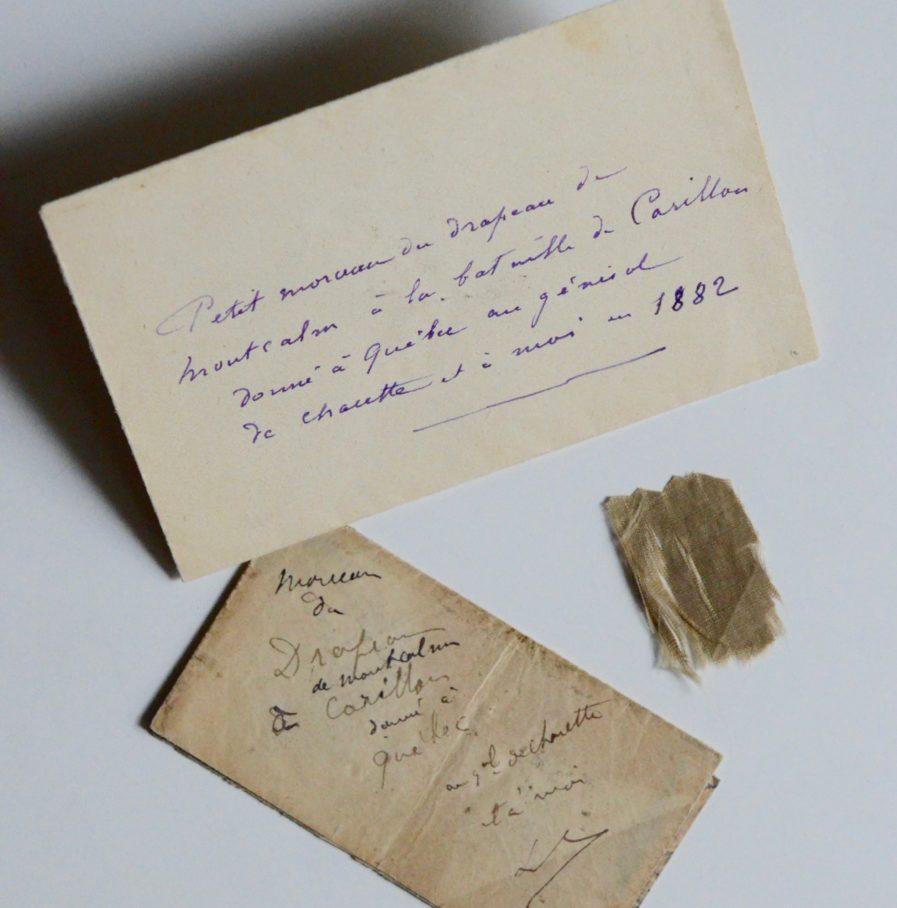 Petit morceau du drapeau de
Montcalm à la bataille de Carillon
donné à Québec au général
de charette et à moi en 1882
Morceau
du
Drapeau
de Montcalm
de Carillon
donné à
Québec
au gal de charette
et à moi